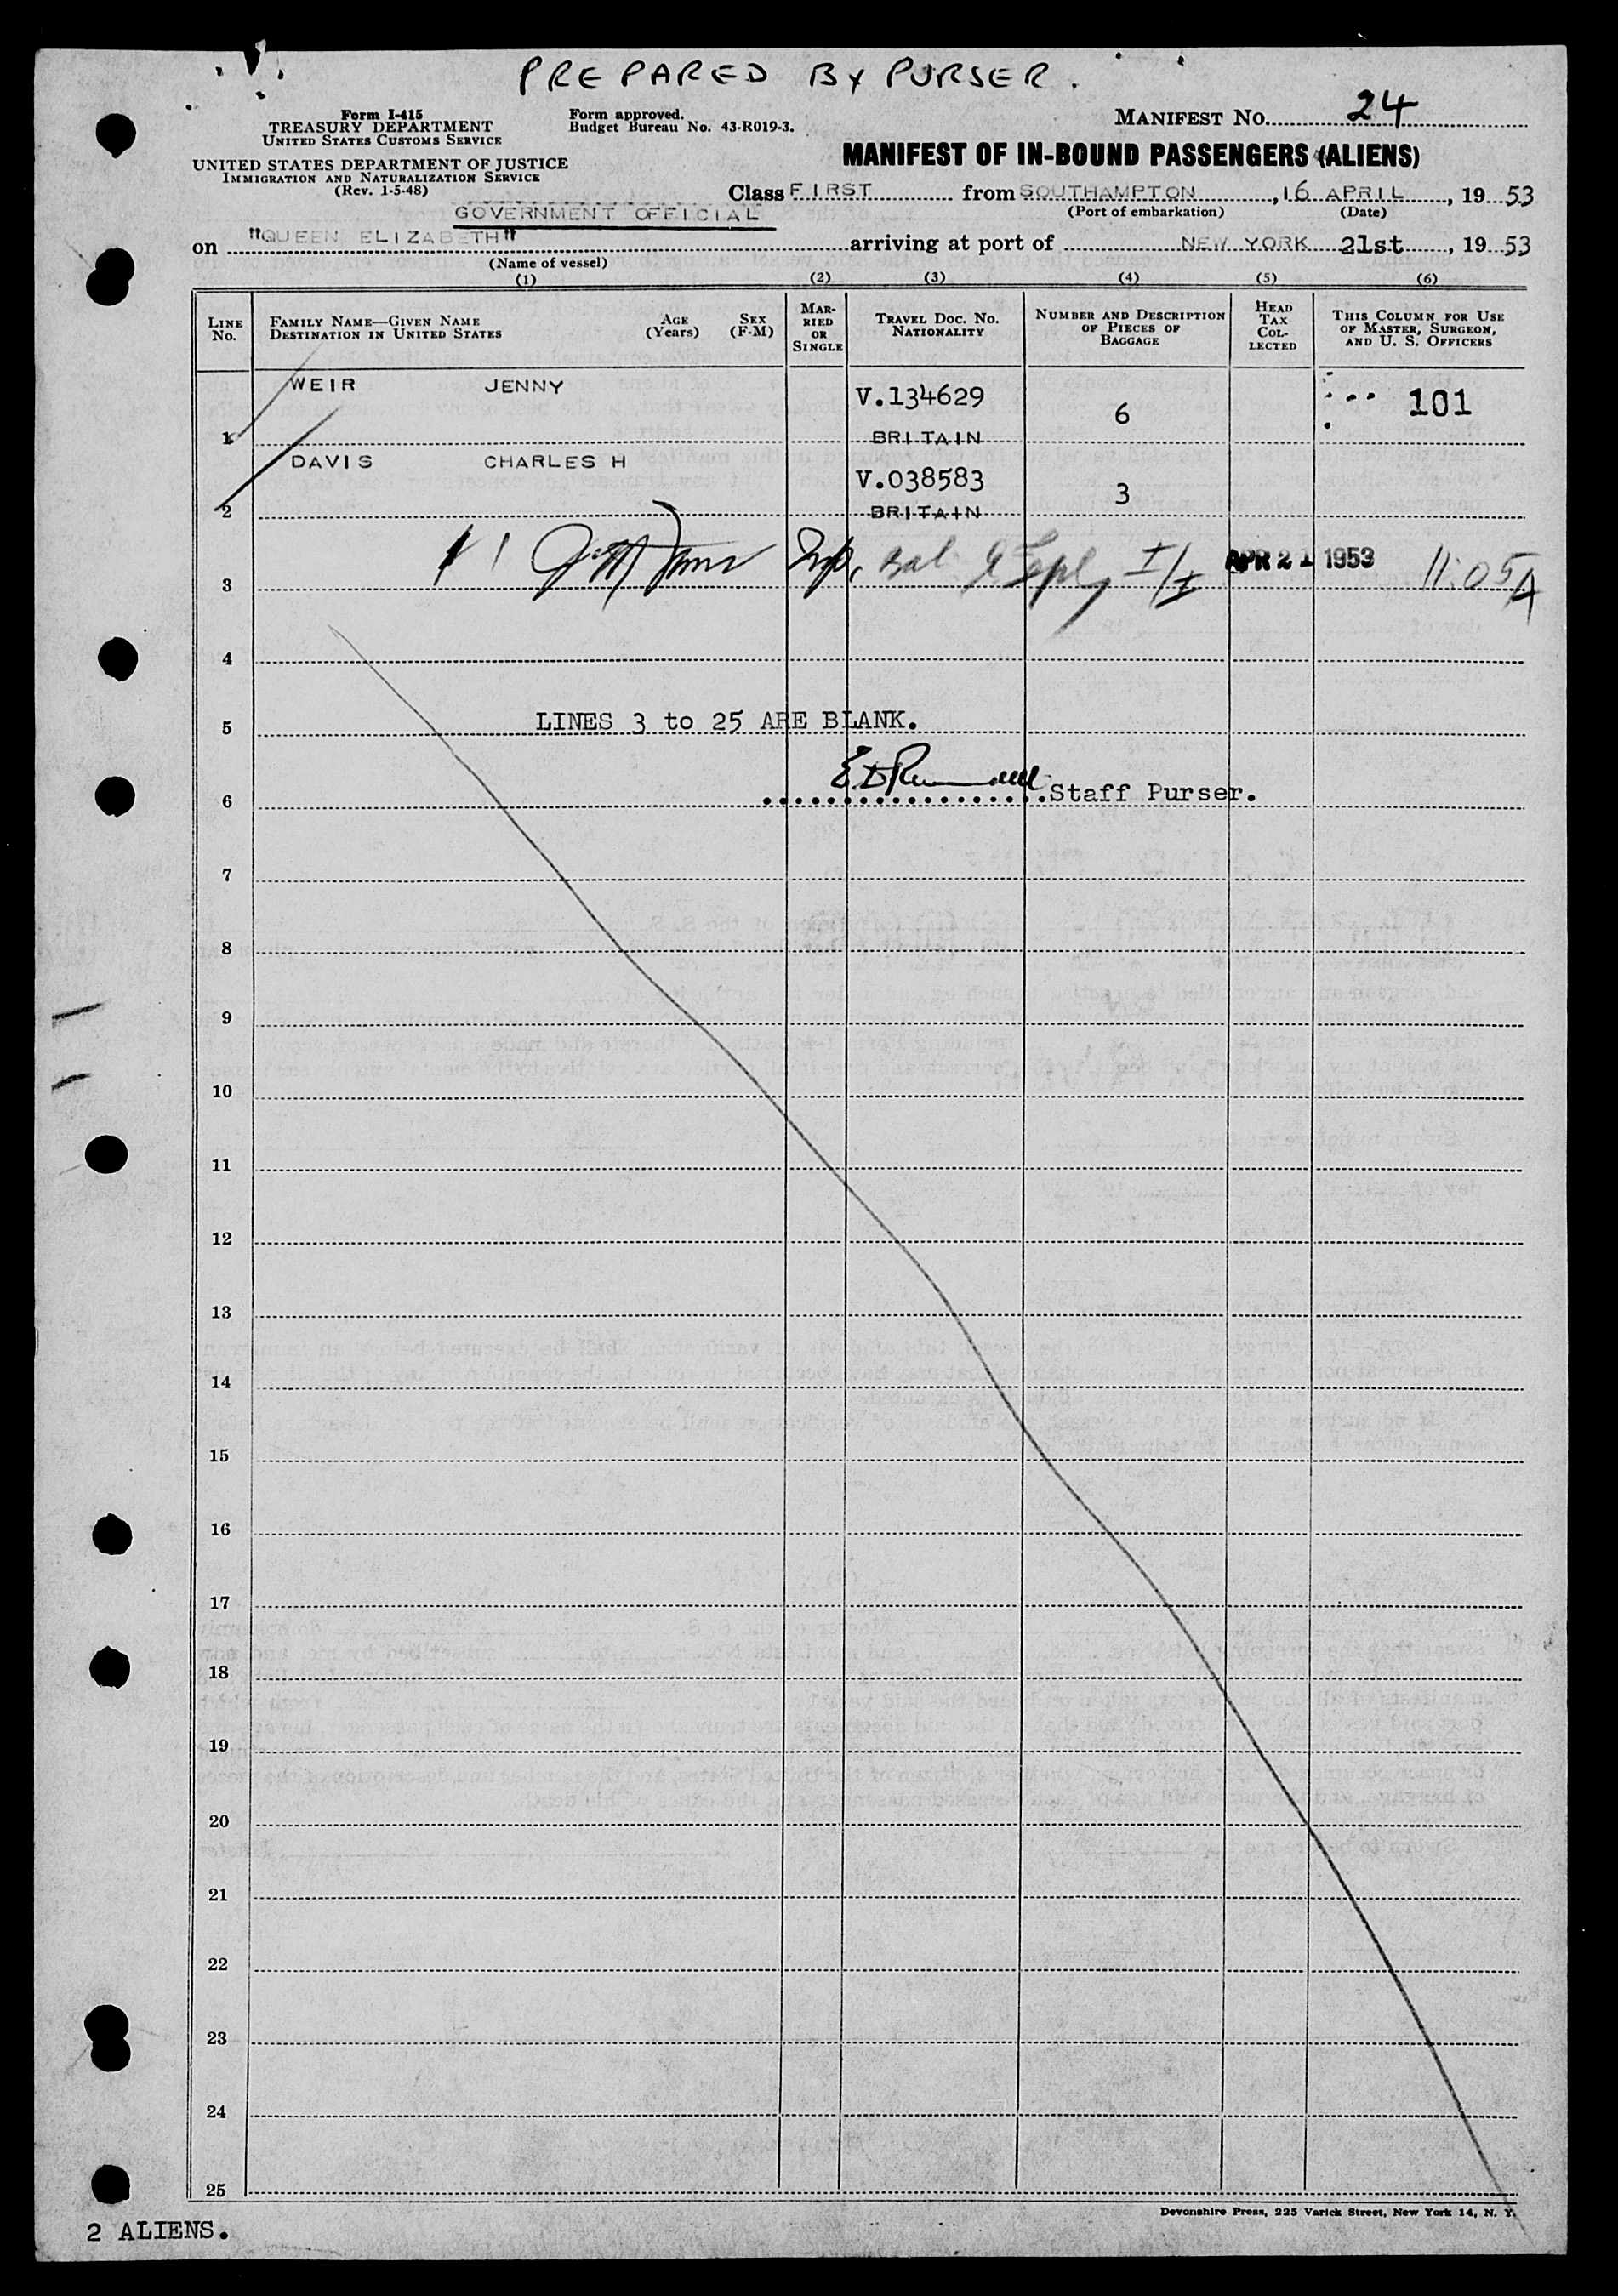 PREPARED BY PURSER.
Form I-415
TREASURY DEPARTMENT
UNITED STATES CUSTOMS SERVICE
UNITED STATES DEPARTMENT OF JUSTICE
IMMIGRATION AND NATURALIZATION SERVICE
(Rev. 1-5-48)
Form approved.
Budget Bureau No. 43-R019-3.
MANIFEST NO. 24
MANIFEST OF IN-BOUND PASSENGERS (ALIENS)
Class FIRST from SOUTHAMPTON, 16 APRIL, 19 53
(Port of embarkation) (Date)
GOVERNMENT OFFICIAL
on "QUEEN ELIZABETH" arriving at port of NEW YORK 21st, 19 53
(Name of vessel)
(1) (2) (3) (4) (5) (6)
LINE NO.
FAMILY NAME—GIVEN NAME
DESTINATION IN UNITED STATES
AGE (YEARS)
SEX (F-M)
MARRIED OR SINGLE
TRAVEL DOC. NO. NATIONALITY
NUMBER AND DESCRIPTION OF PIECES OF BAGGAGE
HEAD TAX COLLECTED
THIS COLUMN FOR USE OF MASTER, SURGEON, AND U. S. OFFICERS
WEIR JENNY V.134629 6 101
1 BRITAIN
DAVIS CHARLES H V.038583 3
2 BRITAIN
I/I APR 21 1953 11:05A
3
4
5 LINES 3 to 25 ARE BLANK.
6 Staff Purser.
7
8
9
10
11
12
13
14
15
16
17
18
19
20
21
22
23
24
25
Devonshire Press, 225 Varick Street, New York 14, N. Y.
2 ALIENS.